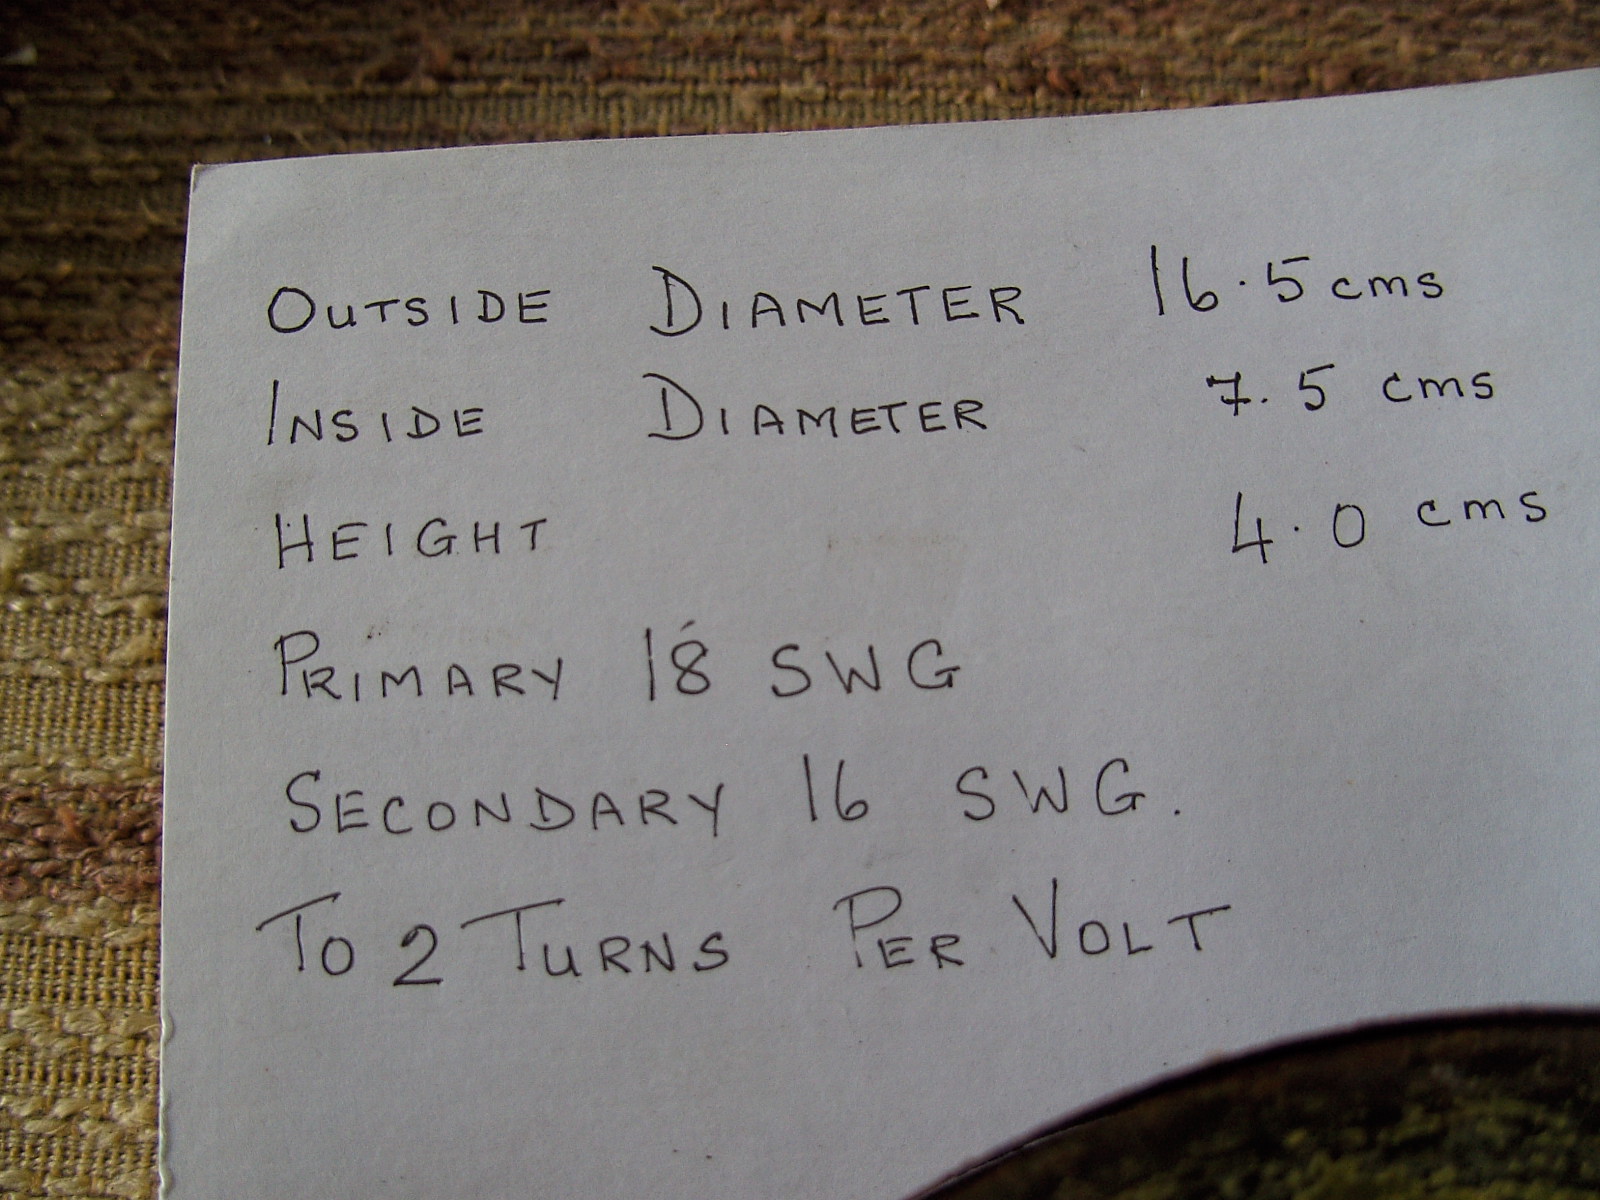 OUTSIDE DIAMETER 16.5 cms
INSIDE DIAMETER 7.5 cms
HEIGHT 4.0 cms
PRIMARY 18 SWG
SECONDARY 16 SWG.
TO 2 TURNS PER VOLT